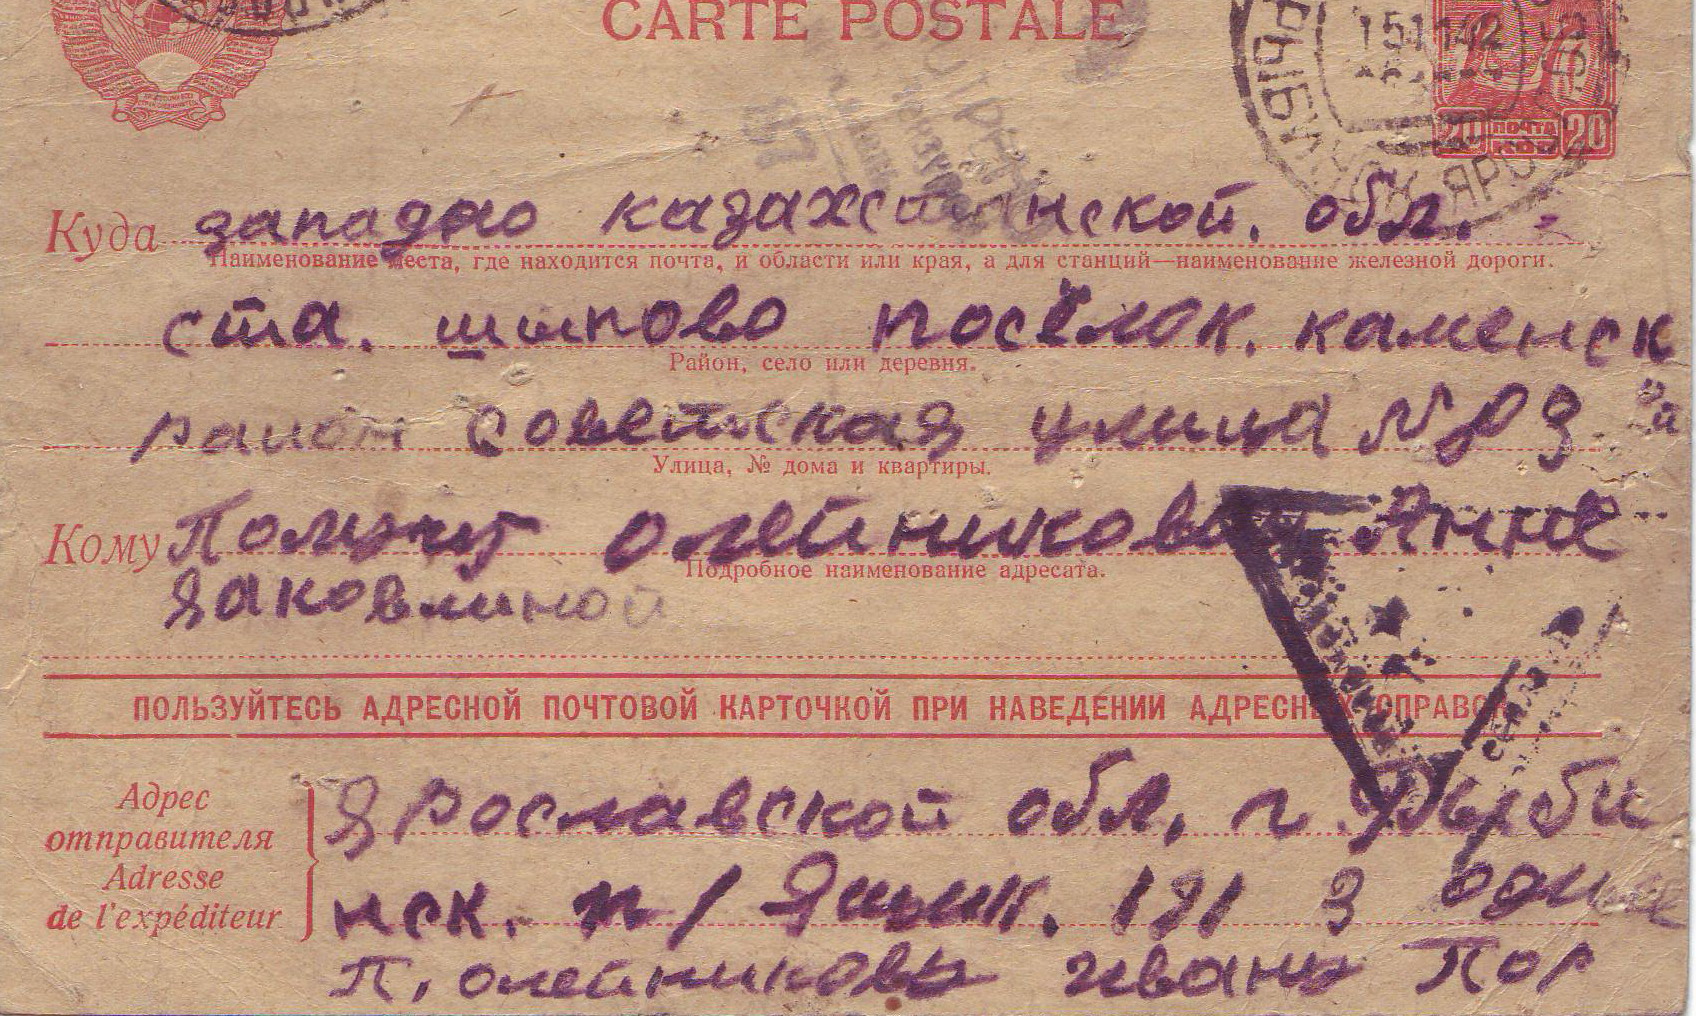 CARTE POSTALE
15 11 42
20 ПОЧТА 20
КОП
Куда западно казахстанской. обл.
Наименование места, где находится почта, и области или края, а для станций—наименование железной дороги.
ста. шипово посёлок. каменск
Район, село или деревня.
район советская улица №
Улица, № дома и квартиры.
Кому Получит олейниковой Анне
Подробное наименование адресата.
Яковлиной
ПОЛЬЗУЙТЕСЬ АДРЕСНОЙ ПОЧТОВОЙ КАРТОЧКОЙ ПРИ НАВЕДЕНИИ АДРЕСНЫХ СПРАВОК
Адрес
отправителя
Adresse
de l'expéditeur
Ярославской обл. г.
нск. п/Ящик. 191
П. олейниковь ивань Пол